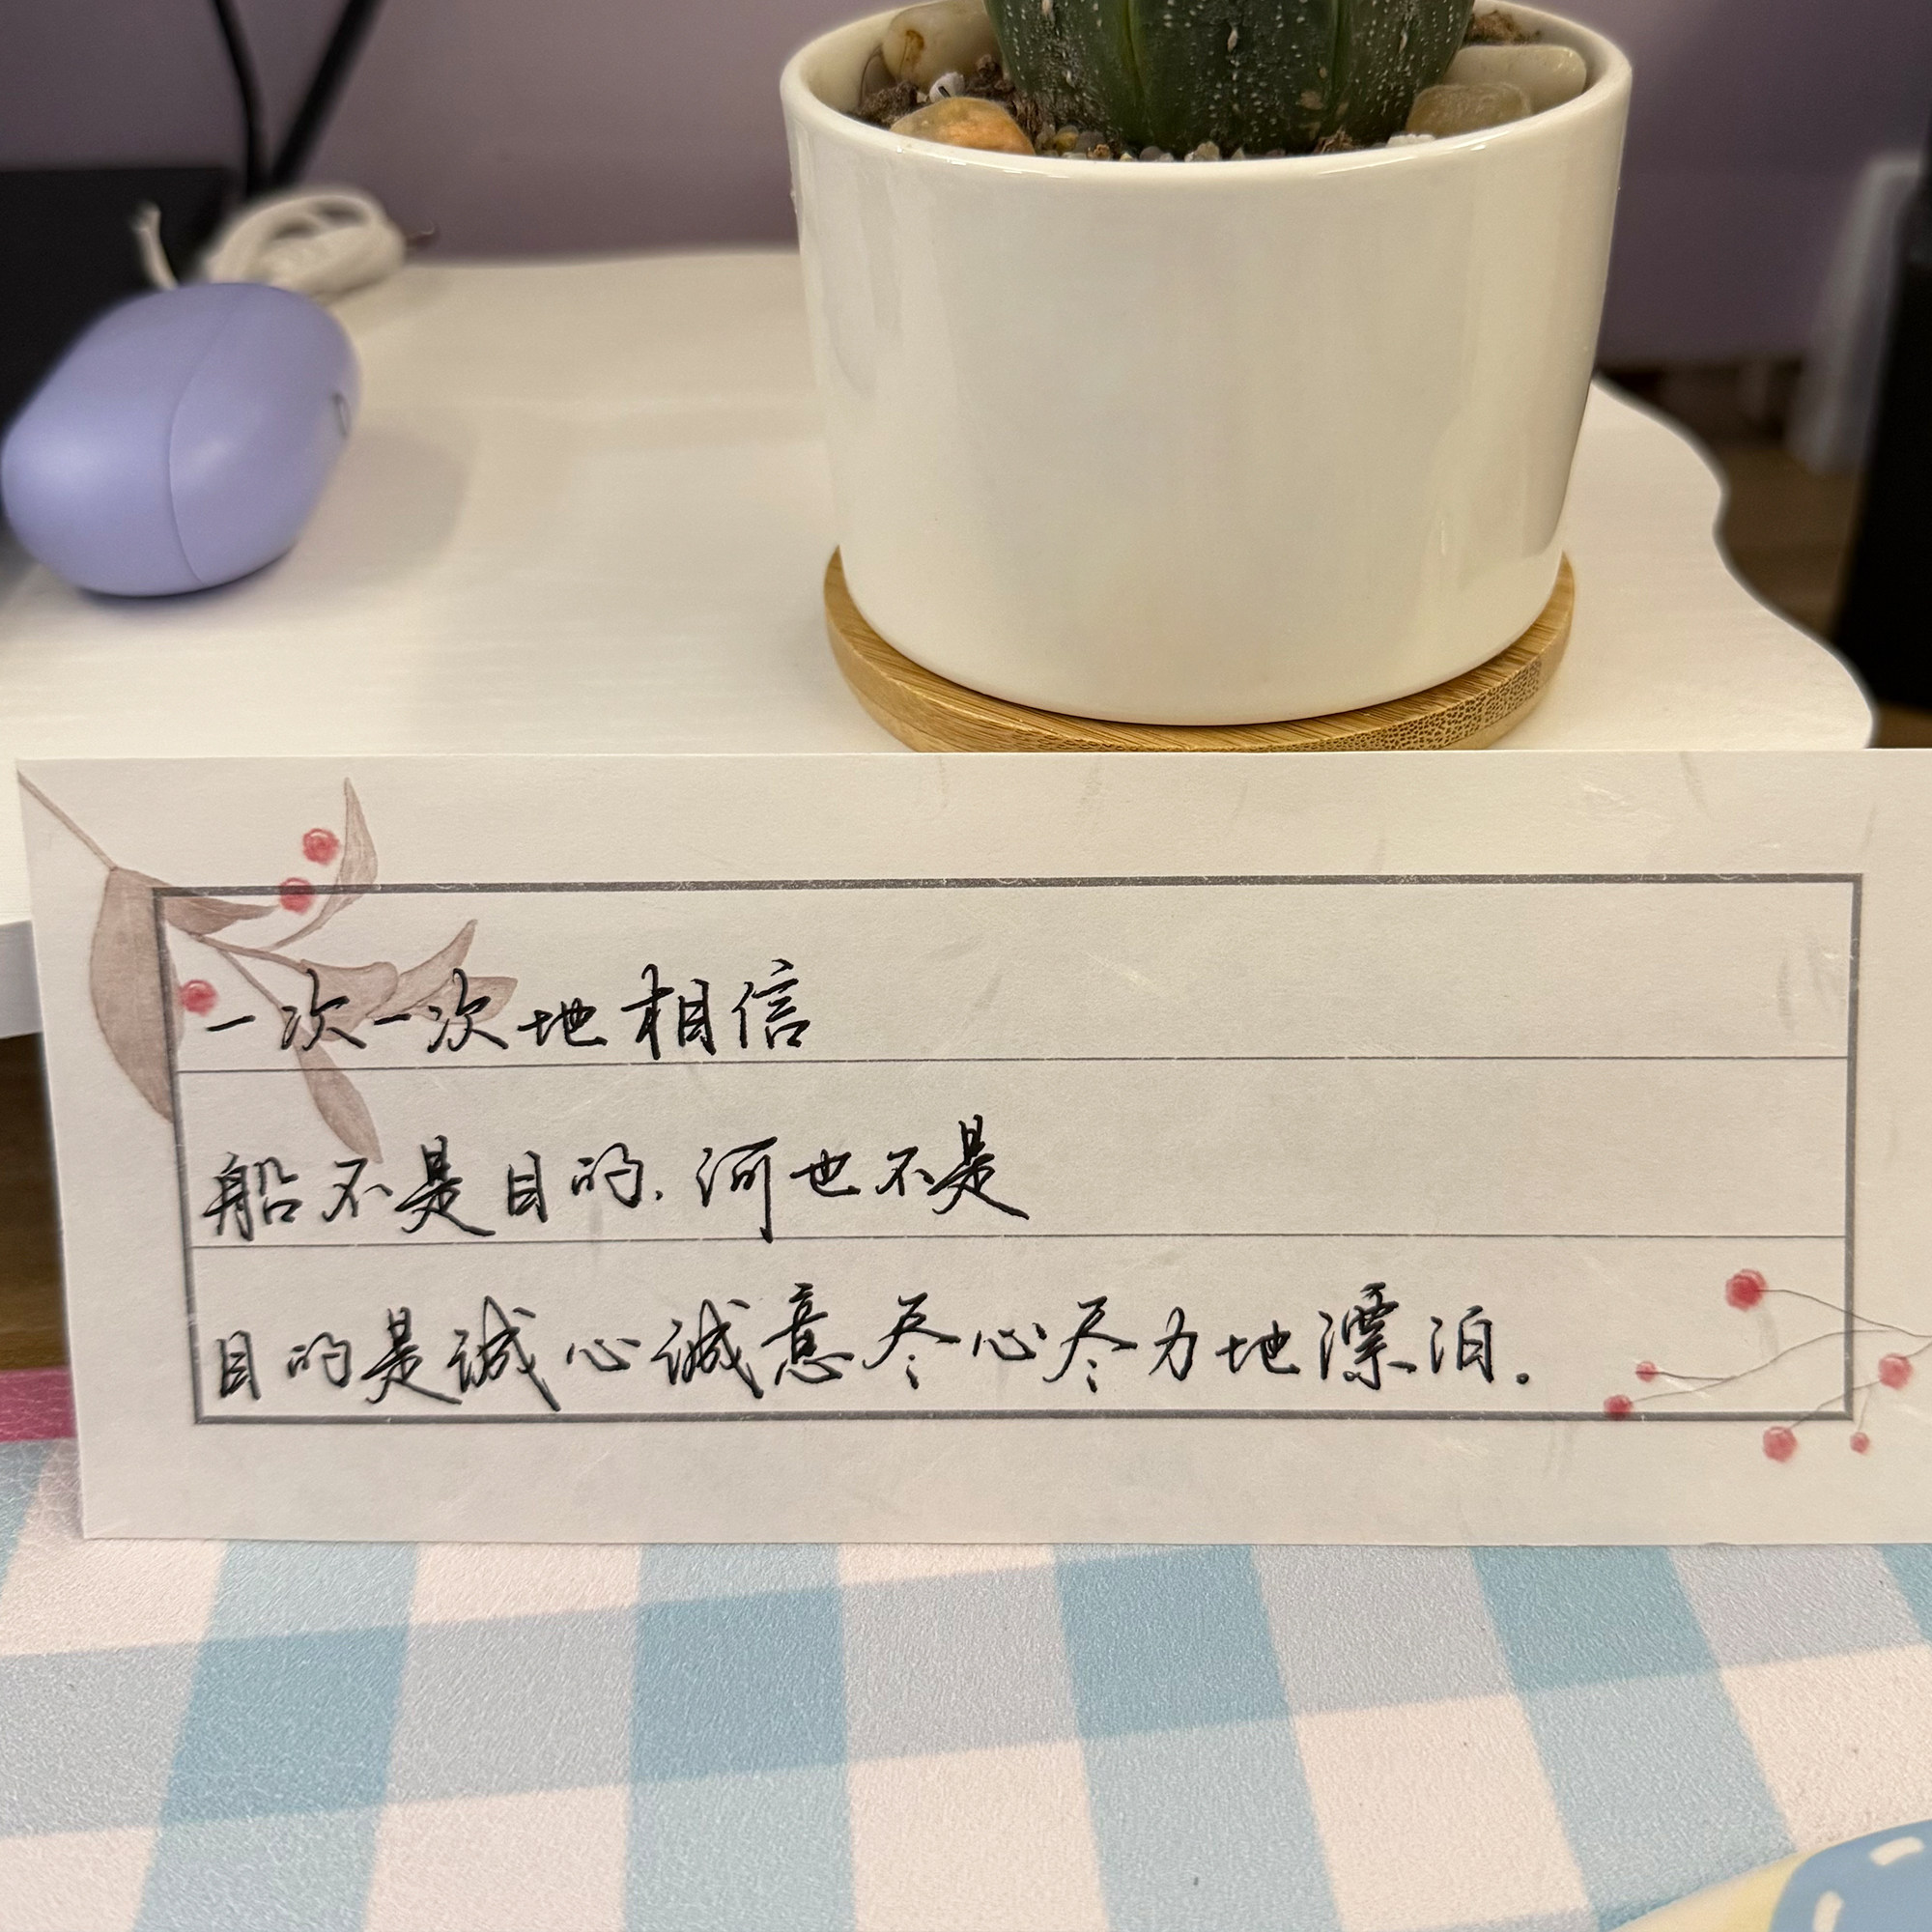 一次一次地相信
船不是目的.河也不是
目的是诚心诚意尽心尽力地漂泊.